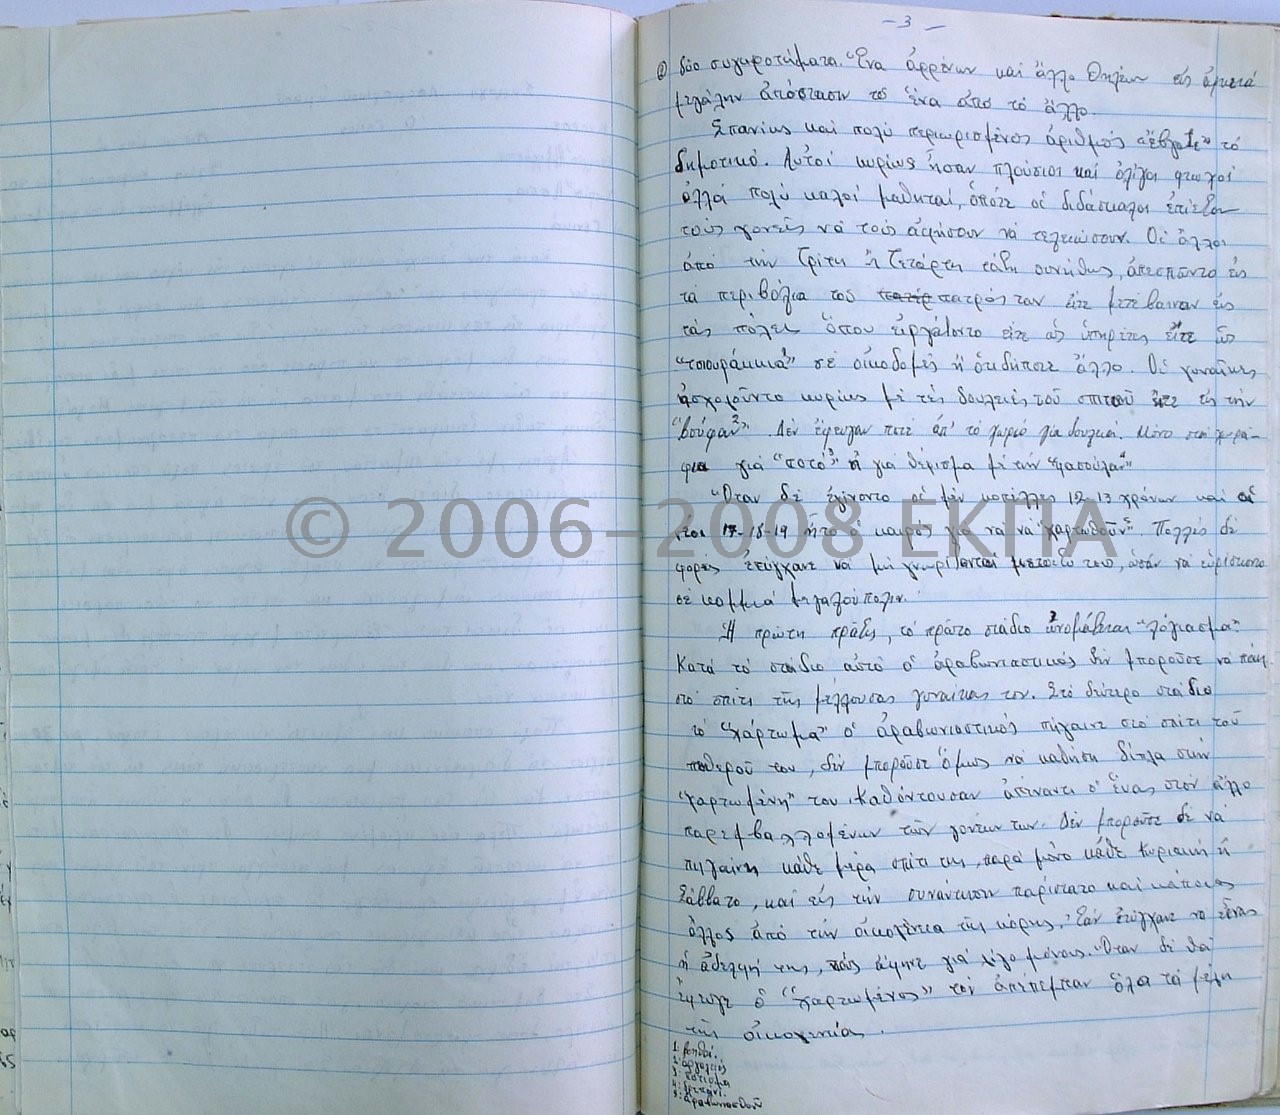 - 3 -
δύο συγκροτήματα. Ἕνα ἀρρένων καί ἄλλο θηλέων εἰς ἀρκετά
μεγάλην ἀπόστασιν τό ἕνα ἀπό τό ἄλλο.
Σπανίως καί πολύ περιωρισμένος ἀριθμός "ἔβγαλε" τό
δημοτικό. Αὐτοί κυρίως ἦσαν πλούσιοι καί ὀλίγοι φτωχοί
ἀλλά πολύ καλοί μαθηταί, ὁπότε οἱ διδάσκαλοι ἐπίεζον
τούς γονεῖς νά τούς ἀφήσουν νά τελειώσουν. Οἱ ἄλλοι
ἀπό τήν Τρίτη ἤ Τετάρτη τάξη συνήθως, ἀπεσπῶντο εἰς
τά περιβόλια τοῦ πατρός των εἴτε μετέβαιναν εἰς
τάς πόλεις ὅπου εἰργάζοντο εἴτε ὡς ὑπηρέτες εἴτε ὡς
"τσιουράκκια"¹ σέ οἰκοδομές ἤ ὁτιδήποτε ἄλλο. Οἱ γυναῖκες
ἀσχολοῦντο κυρίως μέ τές δουλειές τοῦ σπιτιοῦ εἴτε εἰς τήν
"βούφαν"². Δέν ἔφευγαν ποτέ ἀπ' τό χωριό γιά δουλειά. Μόνο στά χωρά-
φια γιά "ποτό"³ ἤ γιά θέρισμα μέ τήν "φασούλαν"⁴
Ὅταν δέ ἐγίνοντο οἱ μέν κοπέλλες 12-13 χρόνων καί οἱ
17-18-19 ἦτο ὁ καιρός γιά νά νά "χαρτωθοῦν"⁵. Πολλές δέ
φορές ἐτύγχανε νά μή γνωρίζονται μεταξύ τους, ὡσάν νά εὑρίσκοντο
σέ καμμιά μεγαλούπολιν.
Ἡ πρώτη πράξις, τό πρῶτο στάδιο ὠνομάζεται "λόγιασμα".
Κατά τό στάδιο αὐτό ὁ ἀραβωνιαστικός δέν μποροῦσε νά πάη
στό σπίτι τῆς μέλλουσας γυναίκας του. Στό δεύτερο στάδιο
τό "χάρτωμα" ὁ ἀραβωνιαστικός πήγαινε στό σπίτι τοῦ
πεθεροῦ του, δέν μποροῦσε ὅμως νά καθήση δίπλα στήν
"χαρτωμένη" του. Καθόντουσαν ἀπέναντι ὁ ἕνας στόν ἄλλο
παρεμβαλλομένων τῶν γονέων των. Δέν μποροῦσε δέ νά
πηγαίνη κάθε μέρα σπίτι της, παρά μόνο κάθε Κυριακή ἤ
Σάββατο, καί εἰς τήν συνάντησιν παρίστατο καί κάποιος
ἄλλος ἀπό τήν οἰκογένεια τῆς κόρης. Ἐάν ἐτύγχανε νά εἶναι
ἡ ἀδελφή της, τούς ἄφηνε γιά λίγο μόνους. Ὅταν δέ θά
ἔφευγε ὁ "χαρτωμένος" τόν ἀπέπεμπαν ὅλα τά μέλη
τῆς οἰκογενείας.
1: βοηθοί.
2: ἀργαλειός
3: πότισμα
4: δρεπάνι.
5: ἀραβωνιασθοῦν
© 2006-2008 ΕΚΠΑ